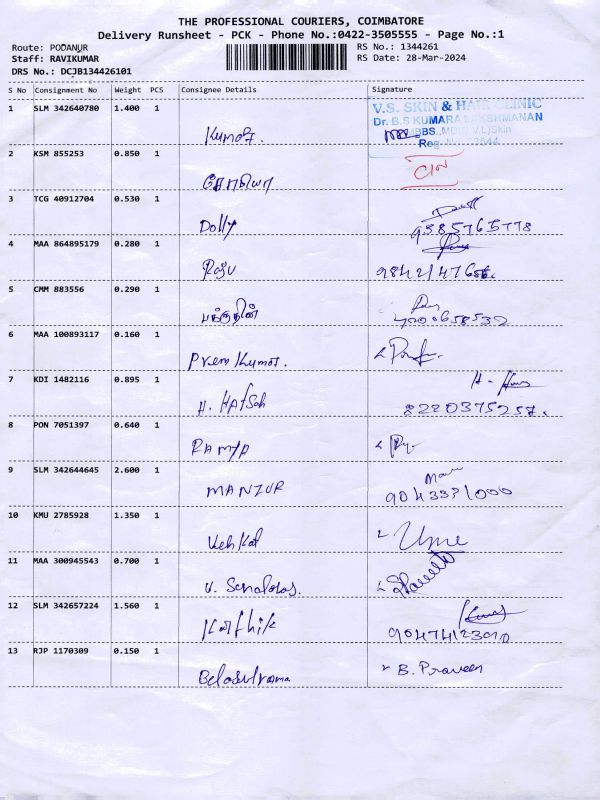 THE PROFESSIONAL COURIERS, COIMBATORE
Delivery Runsheet - PCK - Phone No.:0422-3505555 - Page No.:1
Route: PODANUR
RS No.: 1344261
Staff: RAVIKUMAR
RS Date: 28-Mar-2024
DRS No.: DCJB134426101
S No Consignment No Weight PCS Consignee Details Signature
1 SLM 342640780 1.400 1
V.S. SKIN & HAIR CLINIC
Dr. B.S KUMARA LAKSHMANAN
Kumar.
2 KSM 855253 0.850 1
3 TCG 40912704 0.530 1
Dolly 9385765778
4 MAA 864895179 0.280 1
Raju
5 CMM 883556 0.290 1
6 MAA 100893117 0.160 1
Prem Kumar.
7 KDI 1482116 0.895 1
H. Hafsah 8220375257.
8 PON 7051397 0.640 1
RAMYA
9 SLM 342644645 2.600 1
MANZUR
10 KMU 2785928 1.350 1
Venkat
11 MAA 300945543 0.700 1
12 SLM 342657224 1.560 1
Karthik
13 RJP 1170309 0.150 1
B. Praveen